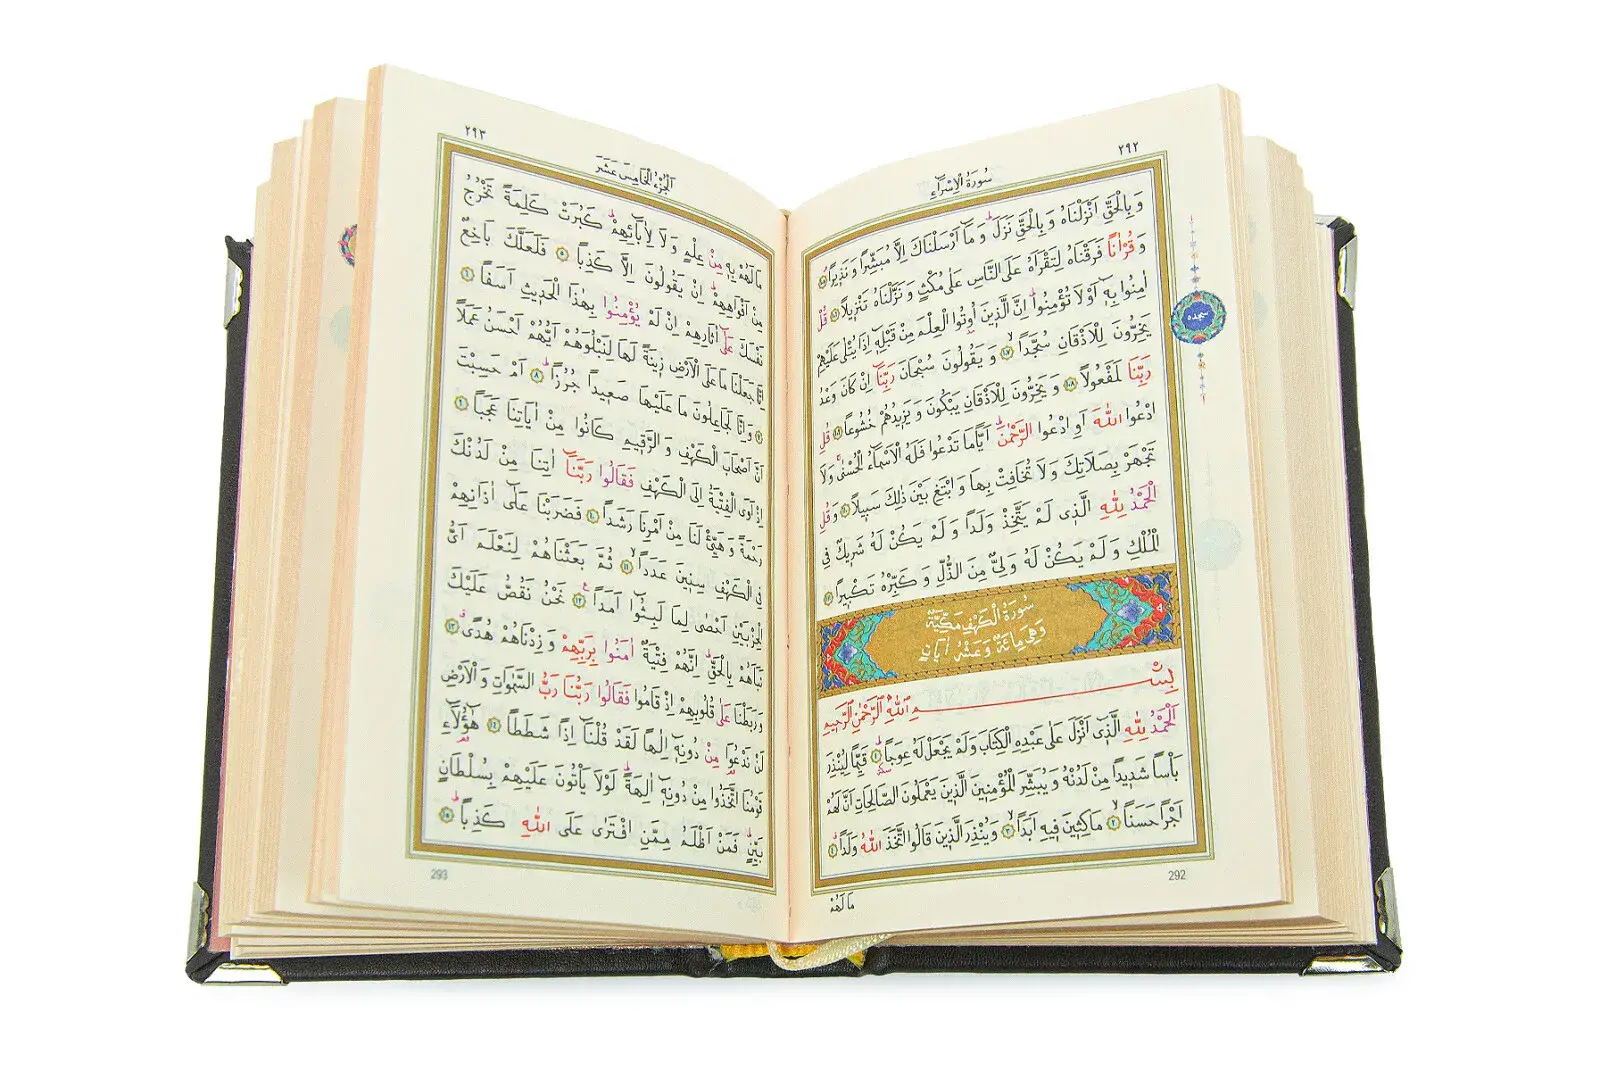 ٢٩٢
سُورَةُ الْاِسْرَاءِ
وَبِالْحَقِّ اَنْزَلْنَاهُ وَبِالْحَقِّ نَزَلَۜ وَمَٓا اَرْسَلْنَاكَ اِلَّا مُبَشِّرًا وَنَذِيرًاۢ ﴿١٠٥﴾
وَقُرْاٰنًا فَرَقْنَاهُ لِتَقْرَاَهُ عَلَى النَّاسِ عَلٰى مُكْثٍ وَنَزَّلْنَاهُ تَنْزِيلًا ﴿١٠٦﴾ قُلْ
اٰمِنُوا بِهِٓ اَوْ لَا تُؤْمِنُواۜ اِنَّ الَّذِينَ اُو۫تُوا الْعِلْمَ مِنْ قَبْلِهِٓ اِذَا يُتْلٰى عَلَيْهِمْ
يَخِرُّونَ لِلْاَذْقَانِ سُجَّدًاۙ ﴿١٠٧﴾ وَيَقُولُونَ سُبْحَانَ رَبِّنَٓا اِنْ كَانَ وَعْدُ
رَبِّنَا لَمَفْعُولًا ﴿١٠٨﴾ وَيَخِرُّونَ لِلْاَذْقَانِ يَبْكُونَ وَيَزِيدُهُمْ خُشُوعًا ﴿١٠٩﴾ قُلِ
ادْعُوا اللّٰهَ اَوِ ادْعُوا الرَّحْمٰنَۜ اَيًّا مَا تَدْعُوا فَلَهُ الْاَسْمَٓاءُ الْحُسْنٰىۚ وَلَا
تَجْهَرْ بِصَلَاتِكَ وَلَا تُخَافِتْ بِهَا وَابْتَغِ بَيْنَ ذٰلِكَ سَبِيلًا ﴿١١٠﴾ وَقُلِ
الْحَمْدُ لِلّٰهِ الَّذِي لَمْ يَتَّخِذْ وَلَدًا وَلَمْ يَكُنْ لَهُ شَرِيكٌ فِي
الْمُلْكِ وَلَمْ يَكُنْ لَهُ وَلِيٌّ مِنَ الذُّلِّ وَكَبِّرْهُ تَكْبِيرًا ﴿١١١﴾
سُورَةُ الْكَهْفِ مَكِّيَّةٌ
وَهِيَ مِائَةٌ وَعَشْرُ اٰيَاتٍ
بِسْمِ اللّٰهِ الرَّحْمٰنِ الرَّحِيمِ
اَلْحَمْدُ لِلّٰهِ الَّذِٓي اَنْزَلَ عَلٰى عَبْدِهِ الْكِتَابَ وَلَمْ يَجْعَلْ لَهُ عِوَجًاۜ ﴿١﴾ قَيِّمًا لِيُنْذِرَ
بَأْسًا شَدِيدًا مِنْ لَدُنْهُ وَيُبَشِّرَ الْمُؤْمِنِينَ الَّذِينَ يَعْمَلُونَ الصَّالِحَاتِ اَنَّ لَهُمْ
اَجْرًا حَسَنًاۙ ﴿٢﴾ مَاكِثِينَ فِيهِ اَبَدًاۙ ﴿٣﴾ وَيُنْذِرَ الَّذِينَ قَالُوا اتَّخَذَ اللّٰهُ وَلَدًاۗ ﴿٤﴾
292
مَا لَهُمْ
سجده
٢٩٣
اَلْجُزْءُ الْخَامِسَ عَشَرَ
مَا لَهُمْ بِهِ مِنْ عِلْمٍ وَلَا لِاٰبَٓائِهِمْۜ كَبُرَتْ كَلِمَةً تَخْرُجُ
مِنْ اَفْوَاهِهِمْۜ اِنْ يَقُولُونَ اِلَّا كَذِبًا ﴿٥﴾ فَلَعَلَّكَ بَاخِعٌ
نَفْسَكَ عَلٰٓى اٰثَارِهِمْ اِنْ لَمْ يُؤْمِنُوا بِهٰذَا الْحَدِيثِ اَسَفًا ﴿٦﴾
اِنَّا جَعَلْنَا مَا عَلَى الْاَرْضِ زِينَةً لَهَا لِنَبْلُوَهُمْ اَيُّهُمْ اَحْسَنُ عَمَلًا
﴿٧﴾ وَاِنَّا لَجَاعِلُونَ مَا عَلَيْهَا صَعِيدًا جُرُزًاۜ ﴿٨﴾ اَمْ حَسِبْتَ
اَنَّ اَصْحَابَ الْكَهْفِ وَالرَّقِيمِ كَانُوا مِنْ اٰيَاتِنَا عَجَبًا ﴿٩﴾
اِذْ اَوَى الْفِتْيَةُ اِلَى الْكَهْفِ فَقَالُوا رَبَّنَٓا اٰتِنَا مِنْ لَدُنْكَ
رَحْمَةً وَهَيِّئْ لَنَا مِنْ اَمْرِنَا رَشَدًا ﴿١٠﴾ فَضَرَبْنَا عَلٰٓى اٰذَانِهِمْ
فِي الْكَهْفِ سِنِينَ عَدَدًاۙ ﴿١١﴾ ثُمَّ بَعَثْنَاهُمْ لِنَعْلَمَ اَيُّ
الْحِزْبَيْنِ اَحْصٰى لِمَا لَبِثُٓوا اَمَدًا۟ ﴿١٢﴾ نَحْنُ نَقُصُّ عَلَيْكَ
نَبَاَهُمْ بِالْحَقِّۜ اِنَّهُمْ فِتْيَةٌ اٰمَنُوا بِرَبِّهِمْ وَزِدْنَاهُمْ هُدًىۗ ﴿١٣﴾
وَرَبَطْنَا عَلٰى قُلُوبِهِمْ اِذْ قَامُوا فَقَالُوا رَبُّنَا رَبُّ السَّمٰوَاتِ وَالْاَرْضِ
لَنْ نَدْعُوَا مِنْ دُونِهِٓ اِلٰهًا لَقَدْ قُلْنَٓا اِذًا شَطَطًا ﴿١٤﴾ هٰٓؤُ۬لَٓاءِ
قَوْمُنَا اتَّخَذُوا مِنْ دُونِهِٓ اٰلِهَةًۜ لَوْلَا يَأْتُونَ عَلَيْهِمْ بِسُلْطَانٍ
بَيِّنٍۜ فَمَنْ اَظْلَمُ مِمَّنِ افْتَرٰى عَلَى اللّٰهِ كَذِبًاۜ ﴿١٥﴾
293